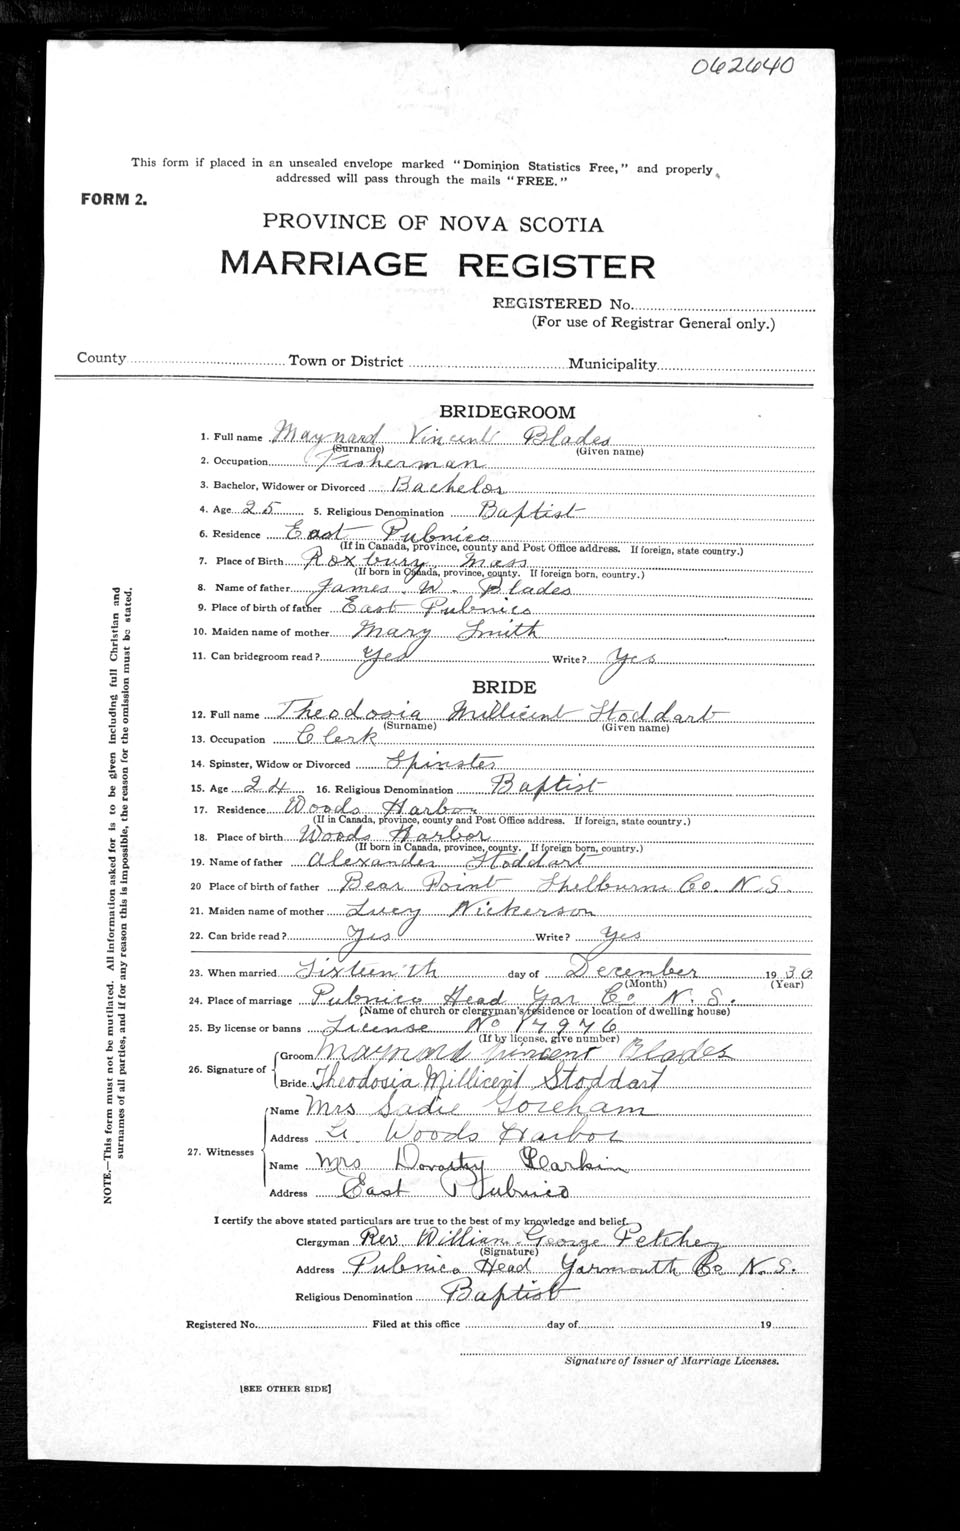 062640
This form if placed in an unsealed envelope marked "Dominion Statistics Free," and properly
addressed will pass through the mails "FREE."
FORM 2.
PROVINCE OF NOVA SCOTIA
MARRIAGE REGISTER
REGISTERED No.
(For use of Registrar General only.)
County Town or District Municipality
BRIDEGROOM
1. Full name Maynard Vincent Blades
(Surname) (Given name)
2. Occupation Fisherman
3. Bachelor, Widower or Divorced Bachelor
4. Age 25 5. Religious Denomination Baptist
6. Residence East Pubnico
(If in Canada, province, county and Post Office address. If foreign, state country.)
7. Place of Birth Roxbury Mass
(If born in Canada, province, county. If foreign born, country.)
8. Name of father James W. Blades
9. Place of birth of father East Pubnico
10. Maiden name of mother Mary Smith
11. Can bridegroom read? Yes Write? Yes
BRIDE
12. Full name Theodosia Millicent Stoddart
(Surname) (Given name)
13. Occupation Clerk
14. Spinster, Widow or Divorced Spinster
15. Age 24 16. Religious Denomination Baptist
17. Residence Woods Harbor
(If in Canada, province, county and Post Office address. If foreign, state country.)
18. Place of birth Woods Harbor
(If born in Canada, province, county. If foreign born, country.)
19. Name of father Alexander Stoddart
20 Place of birth of father Bear Point Shelburne Co. N.S.
21. Maiden name of mother Lucy Nickerson
22. Can bride read? Yes Write? Yes
23. When married Sixteenth day of December 1936
(Month) (Year)
24. Place of marriage Pubnico Head Yar Co N.S.
(Name of church or clergyman's residence or location of dwelling house)
25. By license or banns License No 17976
(If by license, give number)
26. Signature of Groom Maynard Vincent Blades
Bride Theodosia Millicent Stoddart
27. Witnesses Name Mrs Sadie Goreham
Address Woods Harbor
Name Mrs Dorothy Larkin
Address East Pubnico
I certify the above stated particulars are true to the best of my knowledge and belief.
Clergyman Rev William George Petchey
(Signature)
Address Pubnico Head Yarmouth Co N.S.
Religious Denomination Baptist
Registered No. Filed at this office day of 19
Signature of Issuer of Marriage Licenses.
[SEE OTHER SIDE]
NOTE.—This form must not be mutilated. All information asked for is to be given including full Christian and
surnames of all parties, and if for any reason this is impossible, the reason for the omission must be stated.